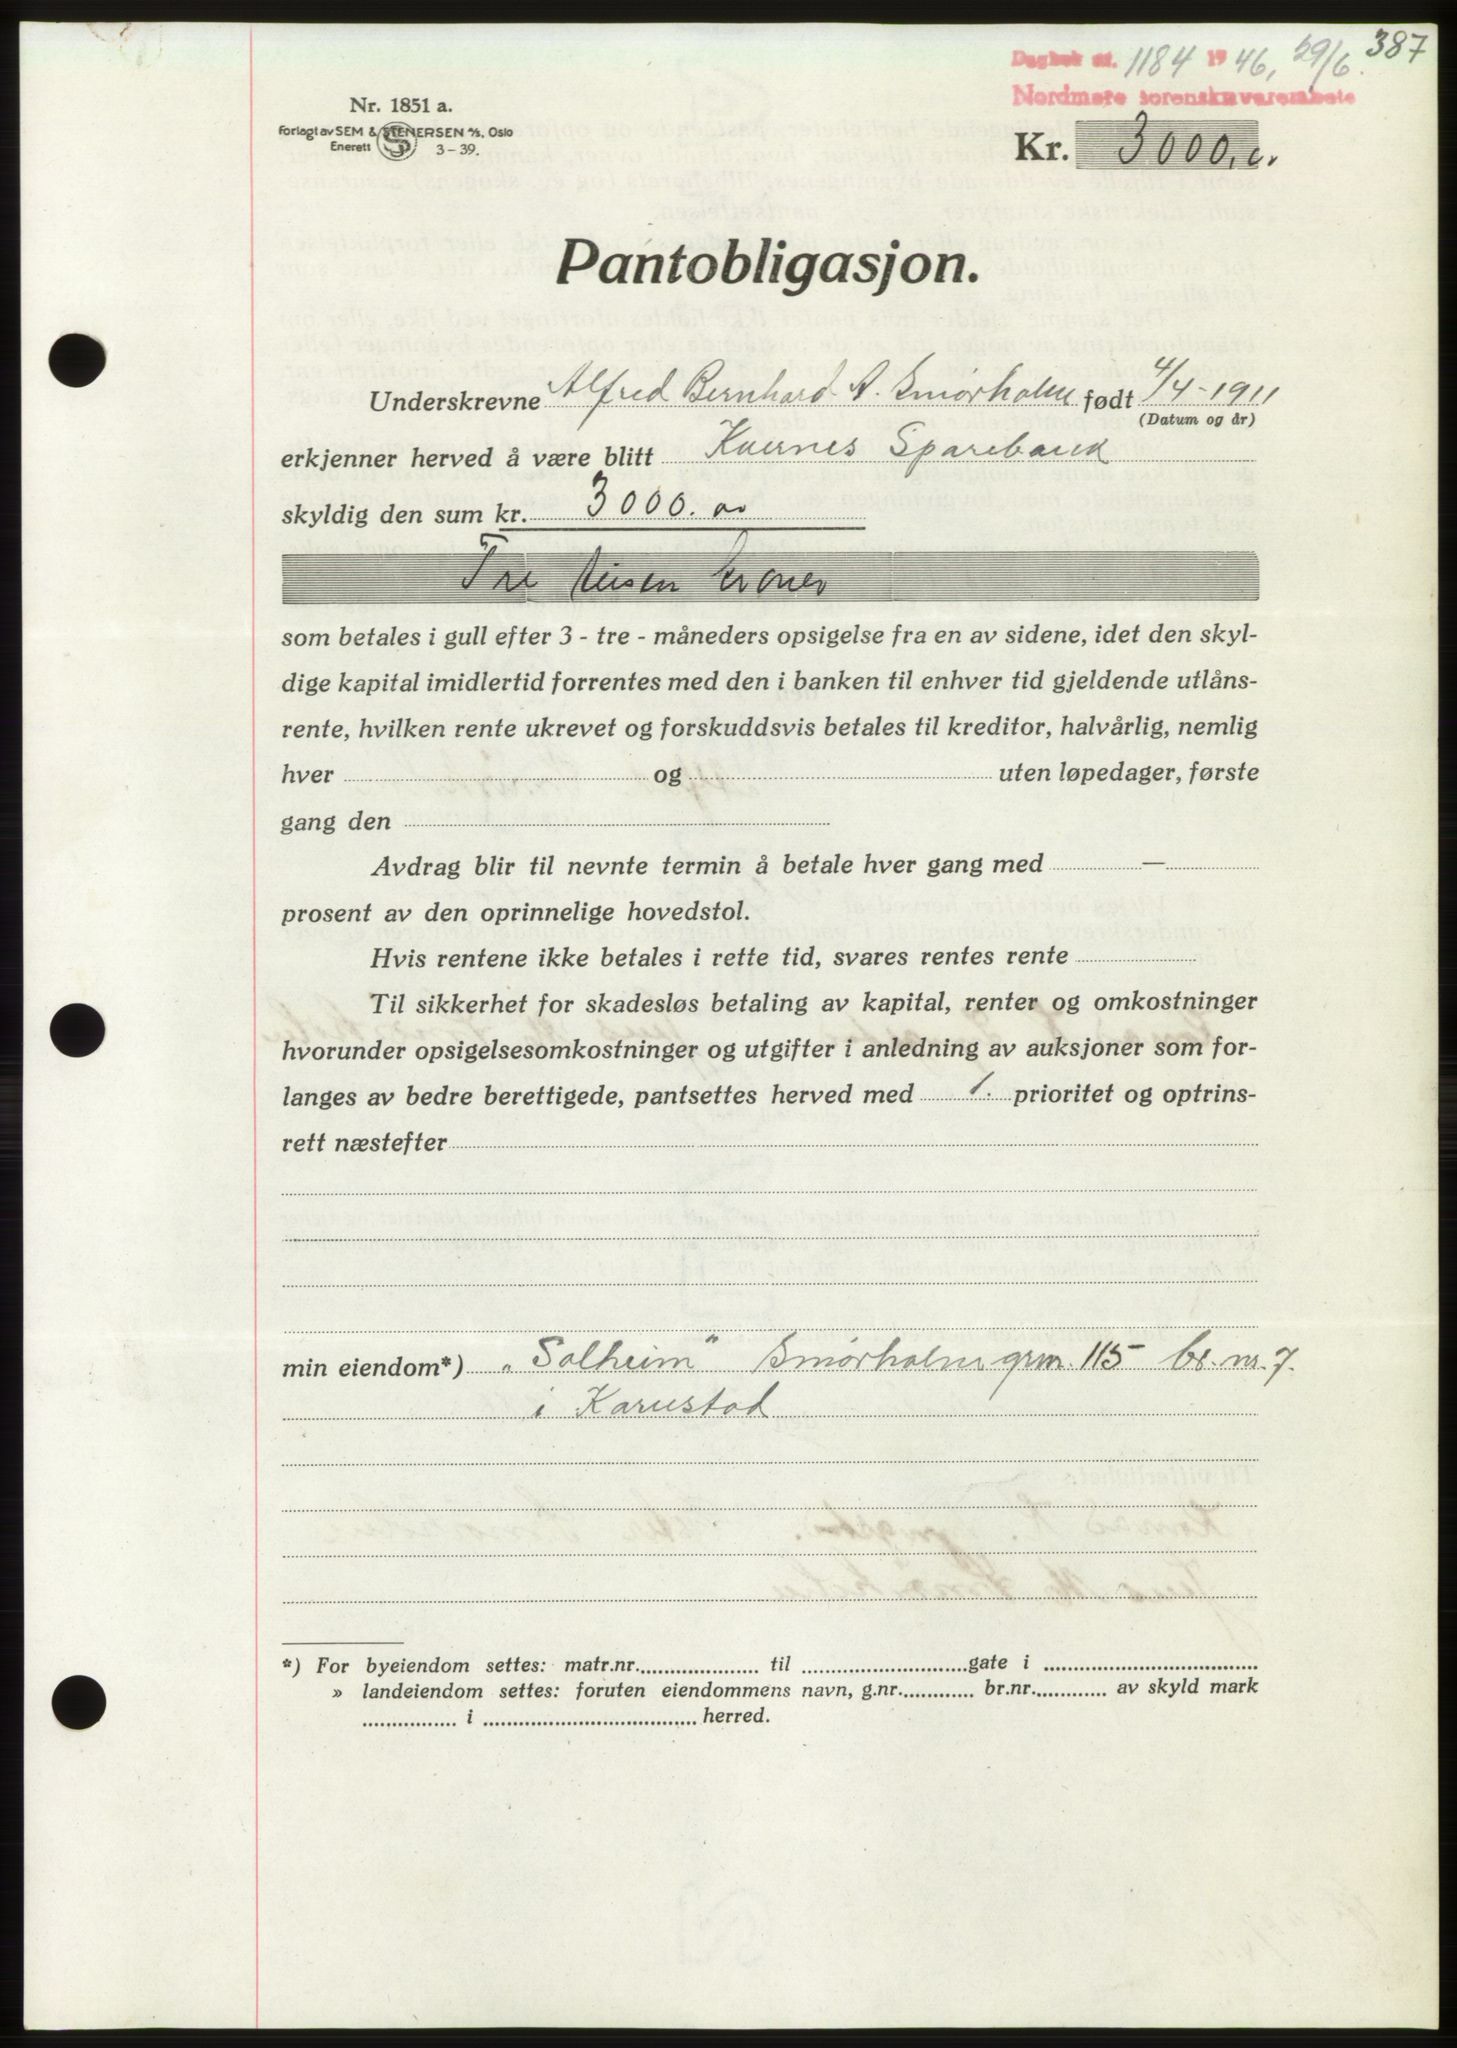 387
Dagbok nr. 1184 1946, 29/6.
Nordmøre sorenskriverembete
Nr. 1851 a.
Forlagt av SEM & STENERSEN A/S, Oslo
Enerett 3-39.
Kr. 3000,
Pantobligasjon.
Underskrevne Alfred Bernhard A. Smørholm født 4/4-1911
(Datum og år)
erkjenner herved å være blitt Kvernes Sparebank
skyldig den sum kr. 3000.
Tre tusen kroner
som betales i gull efter 3 - tre - måneders opsigelse fra en av sidene, idet den skyl-
dige kapital imidlertid forrentes med den i banken til enhver tid gjeldende utlåns-
rente, hvilken rente ukrevet og forskuddsvis betales til kreditor, halvårlig, nemlig
hver og uten løpedager, første
gang den
Avdrag blir til nevnte termin å betale hver gang med —
prosent av den oprinnelige hovedstol.
Hvis rentene ikke betales i rette tid, svares rentes rente
Til sikkerhet for skadesløs betaling av kapital, renter og omkostninger
hvorunder opsigelsesomkostninger og utgifter i anledning av auksjoner som for-
langes av bedre berettigede, pantsettes herved med 1. prioritet og optrins-
rett næstefter
min eiendom*) „Solheim" Smørholm grnr. 115 br. nr. 7.
i
*) For byeiendom settes: matr.nr. til gate i
» landeiendom settes: foruten eiendommens navn, g.nr. br.nr. av skyld mark
i herred.